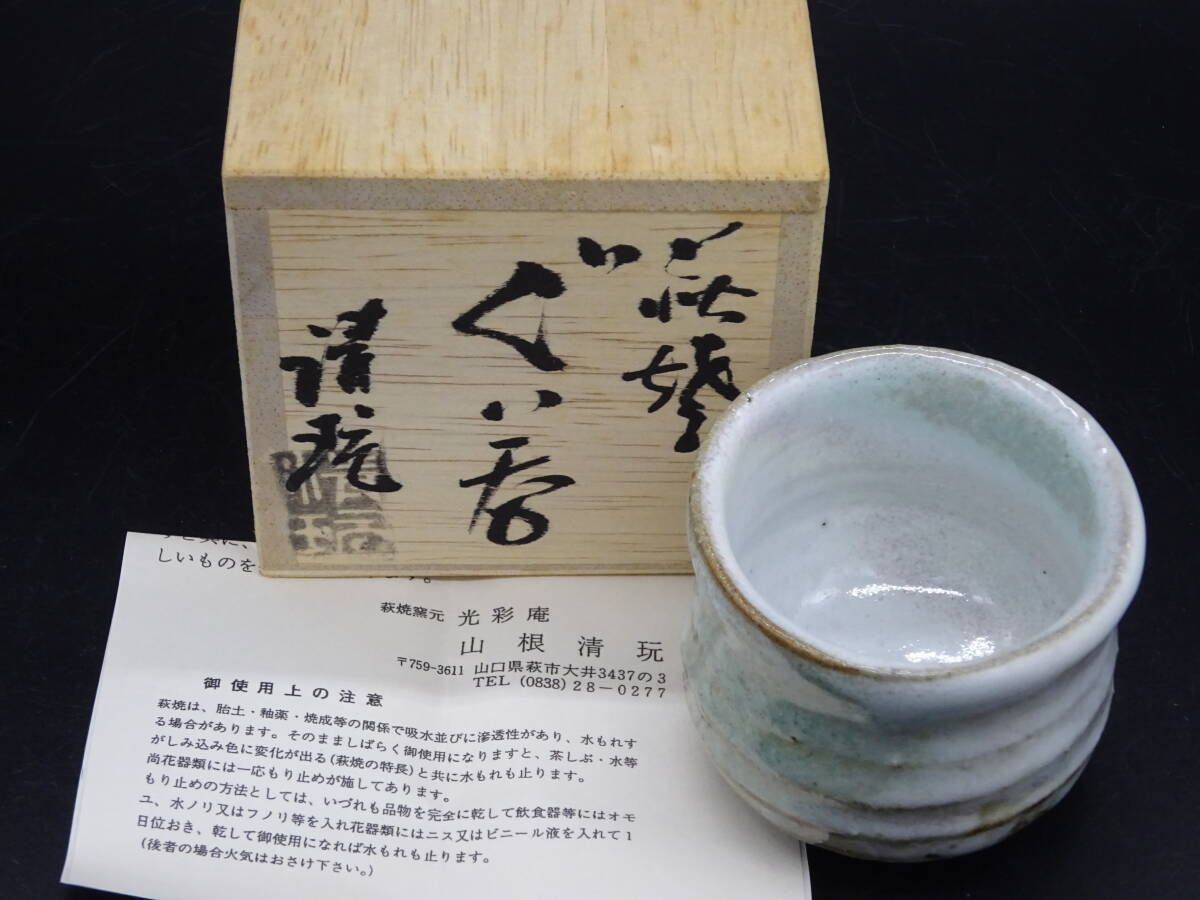 萩焼
ぐい呑
清玩
しいものを
萩焼窯元 光彩庵
山根清玩
〒759-3611 山口県萩市大井3437の3
TEL (0838) 28-0277
御使用上の注意
萩焼は、胎土・釉薬・焼成等の関係で吸水並びに滲透性があり、水もれす
る場合があります。そのまましばらく御使用になりますと、茶しぶ・水等
がしみ込み色に変化が出る(萩焼の特長)と共に水もれも止ります。
尚花器類には一応もり止めが施してあります。
もり止めの方法としては、いづれも品物を完全に乾して飲食器等にはオモ
ユ、水ノリ又はフノリ等を入れ花器類にはニス又はビニール液を入れて1
日位おき、乾して御使用になれば水もれも止ります。
(後者の場合火気はおさけ下さい。)